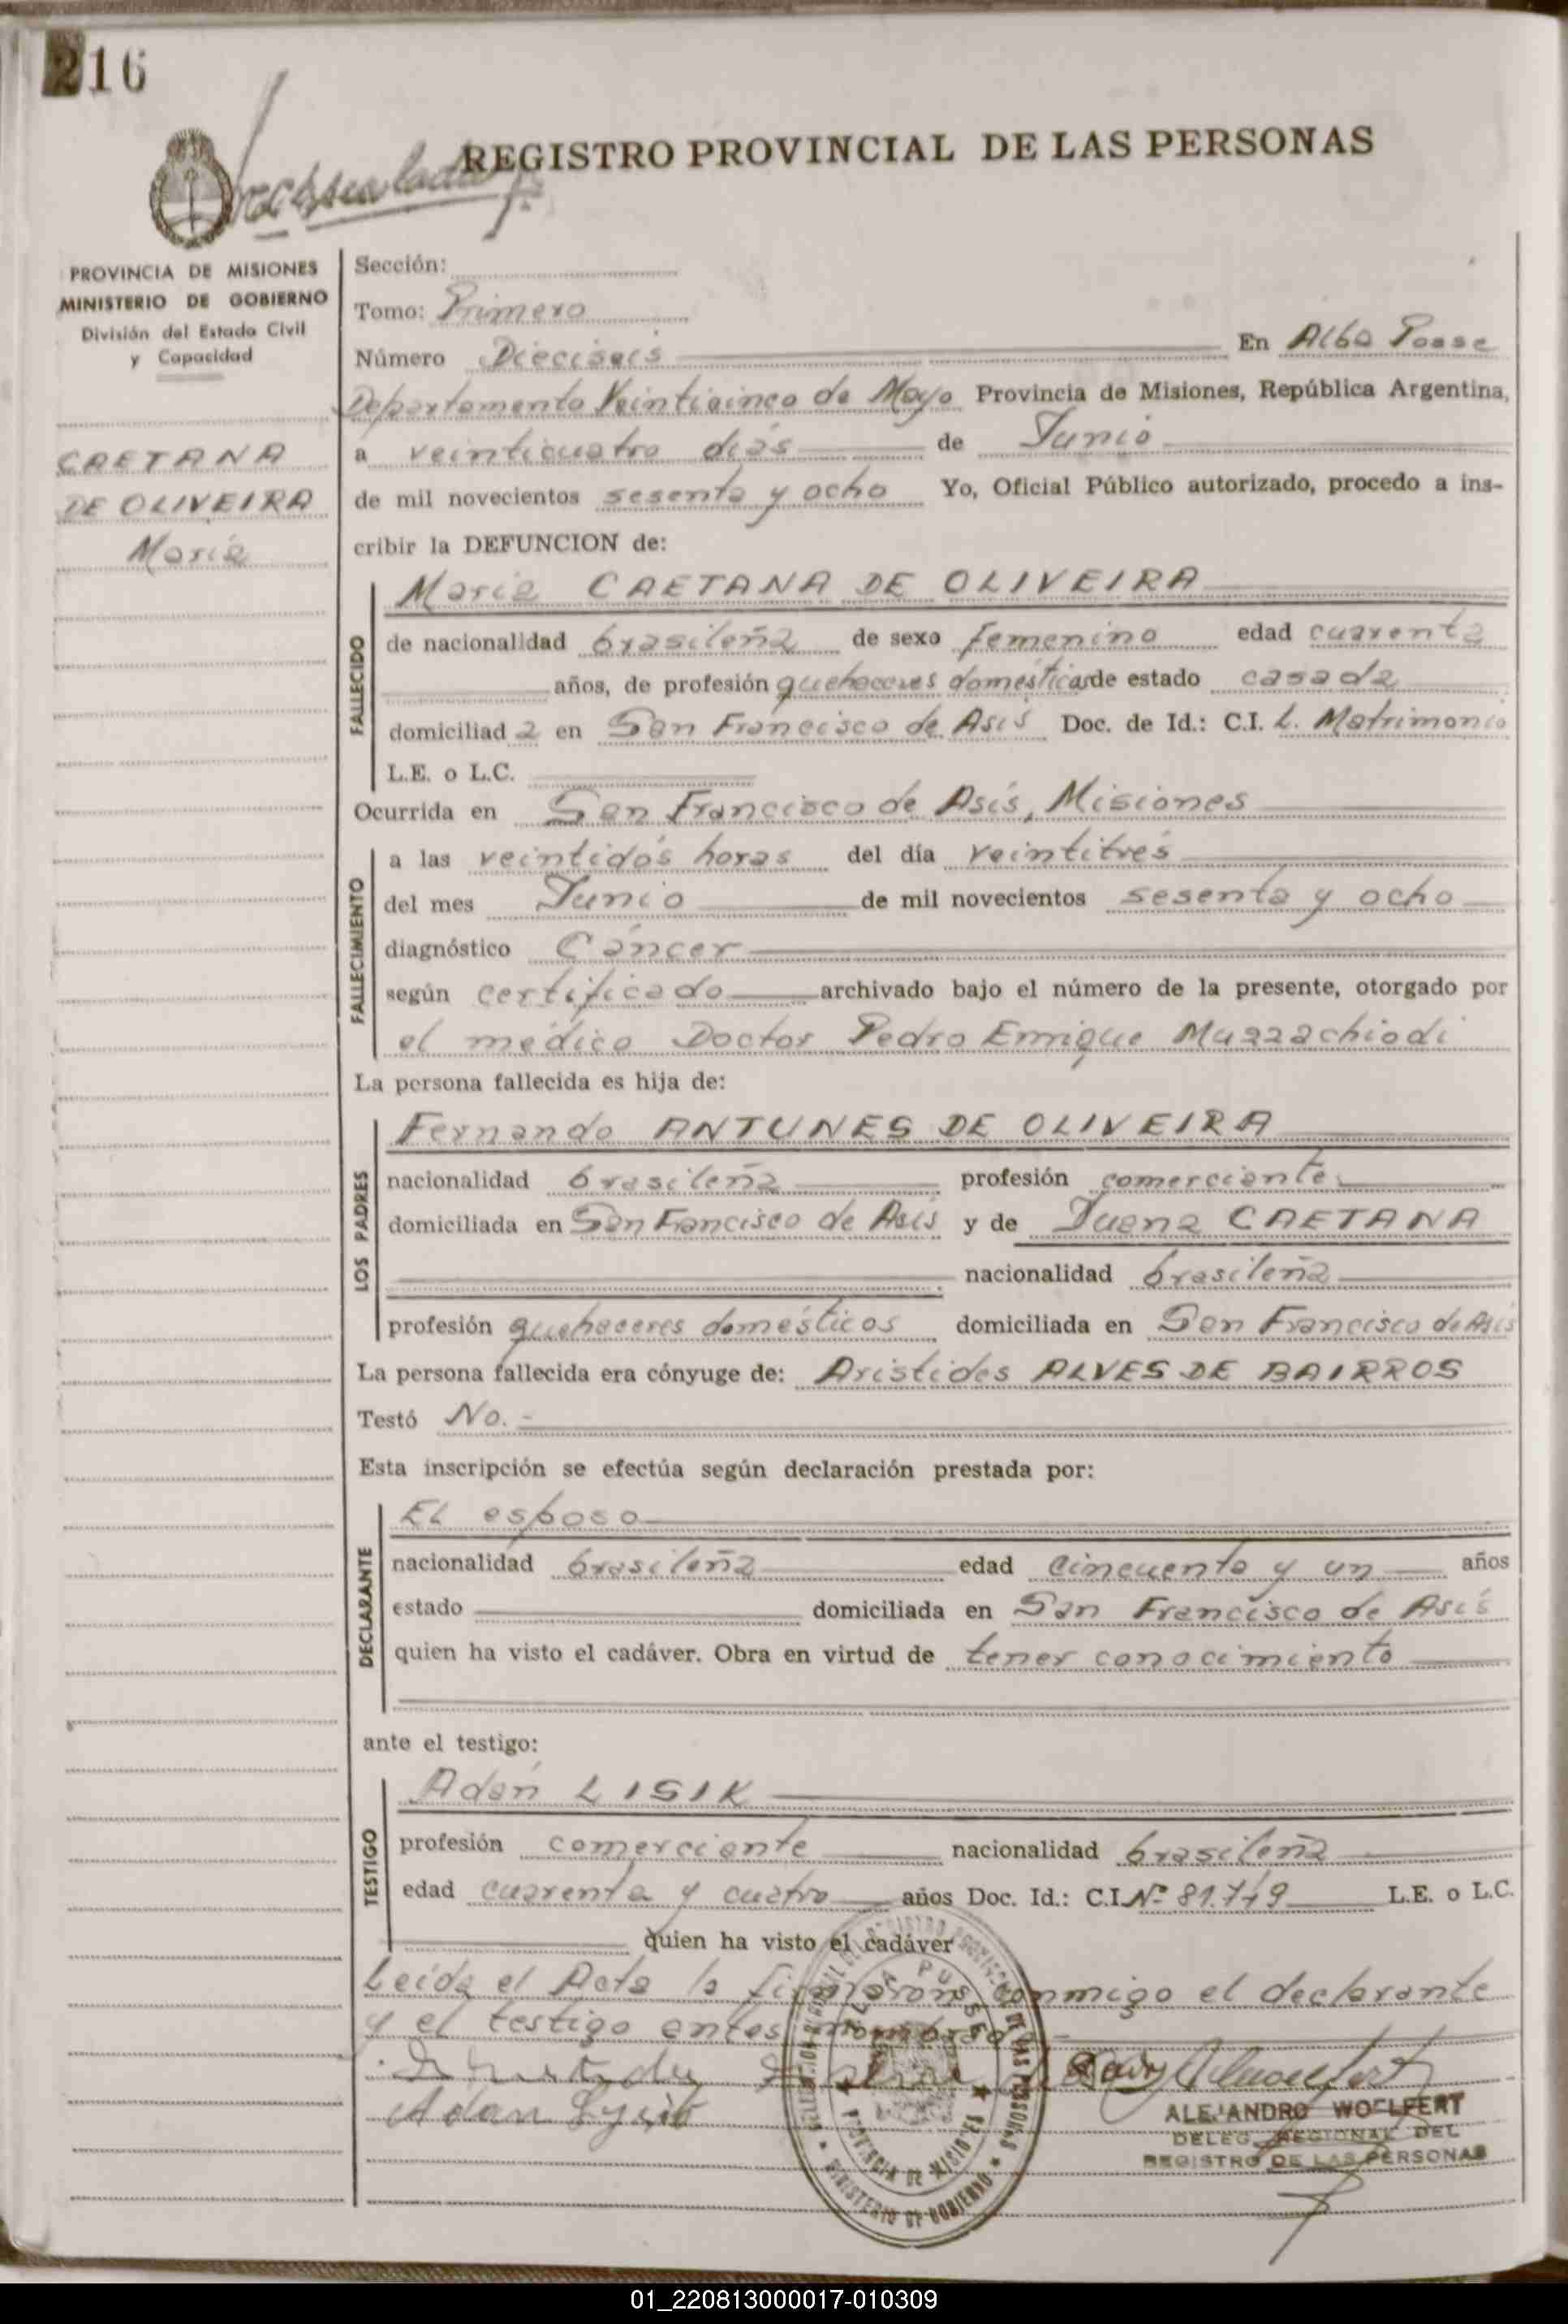 216
REGISTRO PROVINCIAL DE LAS PERSONAS
PROVINCIA DE MISIONES
MINISTERIO DE GOBIERNO
División del Estado Civil
y Capacidad
CAETANA
DE OLIVEIRA
María
Sección:
Tomo: Primero
Número Dieciseis En Alba Posse
Departamento Veinticinco de Mayo Provincia de Misiones, República Argentina,
a veinticuatro días de Junio
de mil novecientos sesenta y ocho Yo, Oficial Público autorizado, procedo a ins-
cribir la DEFUNCION de:
FALLECIDO
María CAETANA DE OLIVEIRA
de nacionalidad brasileña de sexo femenino edad cuarenta
años, de profesión quehaceres domésticas de estado casada
domiciliada en San Francisco de Asís Doc. de Id.: C.I. L. Matrimonio
L.E. o L.C.
Ocurrida en San Francisco de Asís, Misiones
FALLECIMIENTO
a las veintidós horas del día veintitrés
del mes Junio de mil novecientos sesenta y ocho
diagnóstico Cáncer
según certificado archivado bajo el número de la presente, otorgado por
el médico Doctor Pedro Enrique Muzzachiodi
La persona fallecida es hija de:
LOS PADRES
Fernando ANTUNES DE OLIVEIRA
nacionalidad brasileña profesión comerciante
domiciliada en San Francisco de Asís y de Juana CAETANA
nacionalidad brasileña
profesión quehaceres domésticos domiciliada en San Francisco de Asís
La persona fallecida era cónyuge de: Aristides ALVES DE BAIRROS
Testó No.-
Esta inscripción se efectúa según declaración prestada por:
DECLARANTE
EL esposo
nacionalidad brasileña edad cincuenta y un años
estado domiciliada en San Francisco de Asís
quien ha visto el cadáver. Obra en virtud de tener conocimiento
ante el testigo:
TESTIGO
Adán LISIK
profesión comerciante nacionalidad brasileña
edad cuarenta y cuatro años Doc. Id.: C.I. Nº 81.749 L.E. o L.C.
quien ha visto el cadáver
Leída el Acta la firmaron conmigo el declarante
y el testigo antes nombrado
Adan
ALEJANDRO WOLFERT
DELEG. REGIONAL DEL
REGISTRO DE LAS PERSONAS
ALBA POSSE
PROVINCIA DE MISIONES
MINISTERIO DE GOBIERNO
01_220813000017-010309